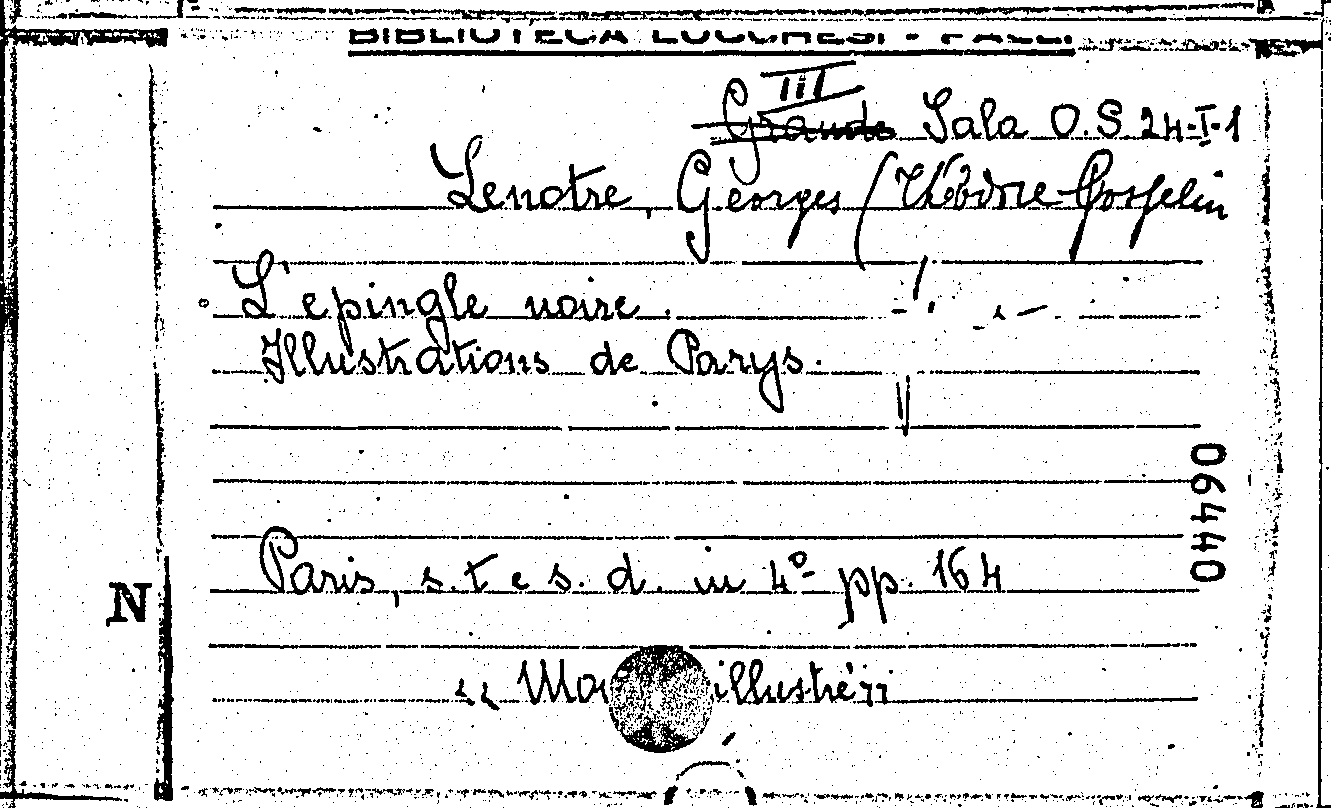 BIBLIOTECA LUCCHESI - PALLI
III
Grande Sala O.S 24-I-1
Lenotre, Georges (Théodore Gosselin
L'epingle noire.
Illustrations de Parys.
06440
Paris, s.t e s. d. in 4º pp. 164
N
"illustré"